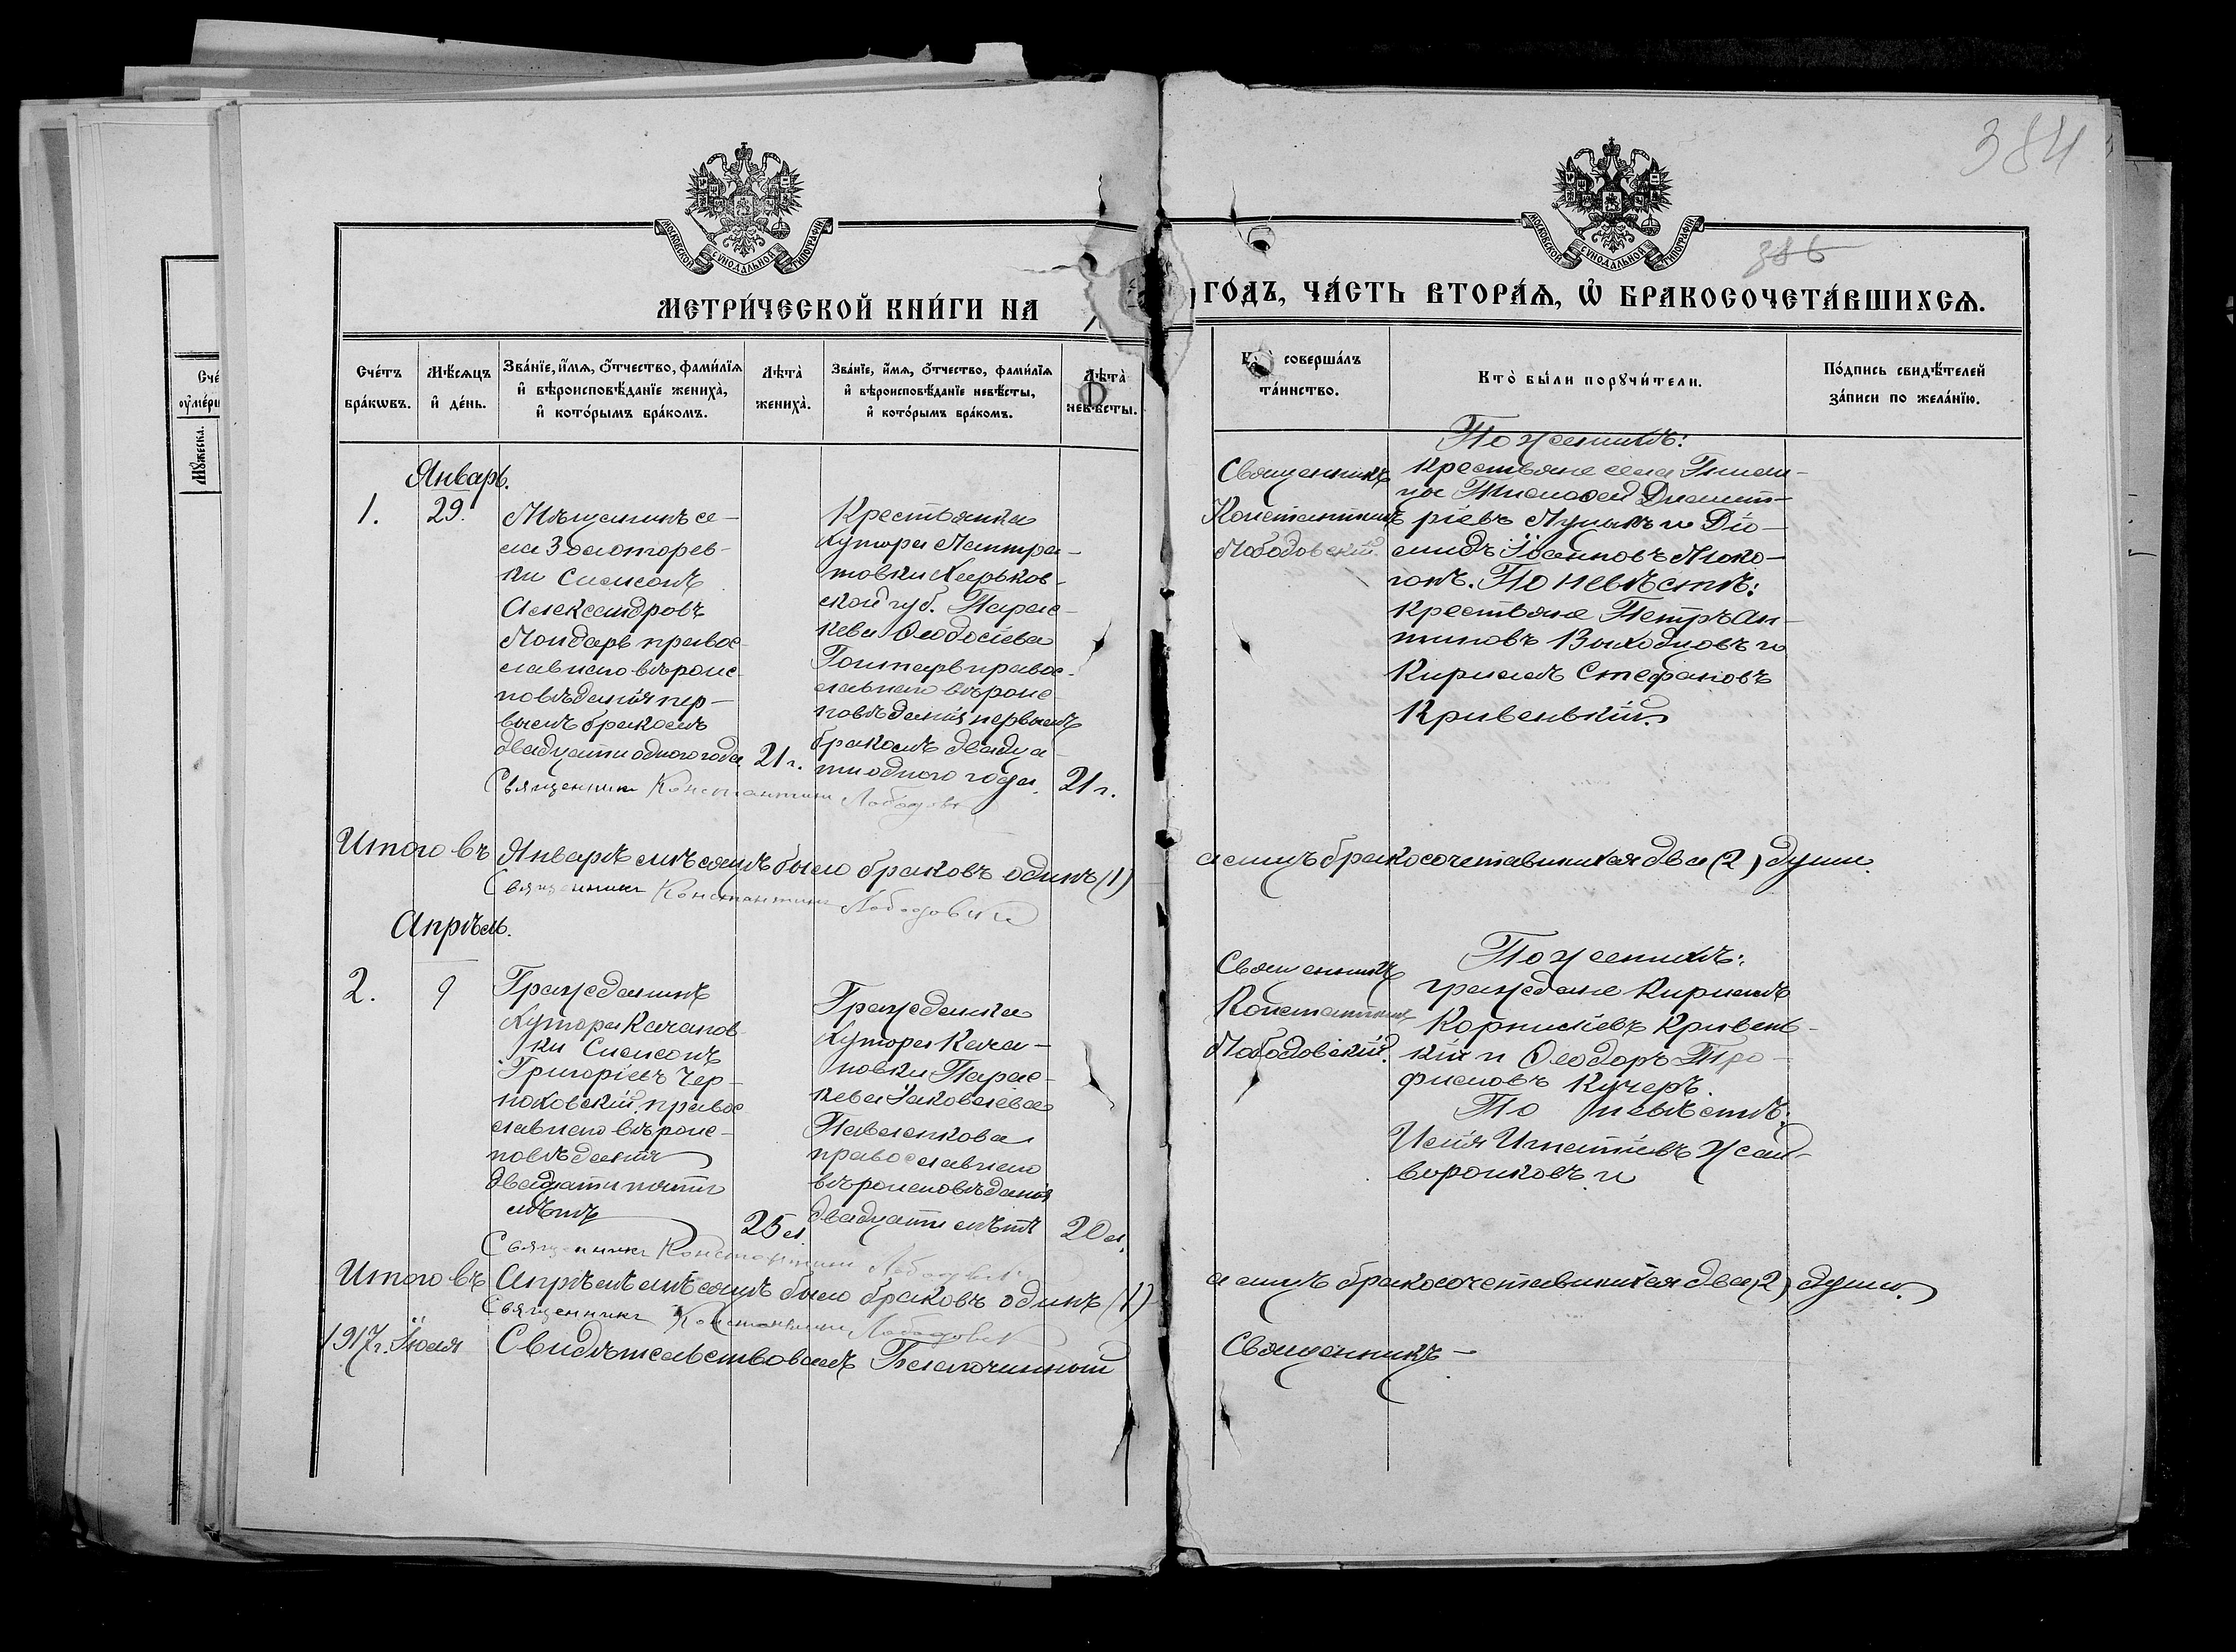 384
386
МОСКОВСКОЙ СѴНОДАЛЬНОЙ ТИПОГРАФІИ
МОСКОВСКОЙ СѴНОДАЛЬНОЙ ТИПОГРАФІИ
МЕТРИ́ЧЕСКОЙ КНИ́ГИ НА
ГО́ДЪ, ЧА́СТЬ ВТОРА́Ѧ, Ѡ҆ БРАКОСОЧЕТА́ВШИХСѦ.
Сче́тъ бра́кѡвъ.
Мѣ́сѧцъ и҆ де́нь.
Зва́нїе, и҆́мѧ, ѻ҆́тчество, фами́лїѧ
и҆ вѣроисповѣ́данїе жениха̀,
и҆ кото́рымъ бра́комъ.
Лѣта̀ жениха̀.
Зва́нїе, и҆́мѧ, ѻ҆́тчество, фами́лїѧ
и҆ вѣроисповѣ́данїе невѣ́сты,
и҆ кото́рымъ бра́комъ.
Лѣта̀ невѣ́сты.
соверша́лъ та́инство.
Кто̀ бы́ли порꙋчи́тели.
По́дпись свидѣ́телей
за́писи по жела́нїю.
Январь.
1.
29.
Мѣщанинъ се-
ла Золоторев-
ки Симеонъ
Александровъ
православ
славнаго вѣроис-
повѣданія пер-
вымъ бракомъ
двадцати одного года
21 г.
Крестьянка
хутора
Харьков-
ской губ. Парас-
кева Ѳеодосіева
Гонтарь правос-
лавнаго вѣроис
повѣданія первымъ
бракомъ двадца-
ти одного года.
21 г.
Священникъ Константинъ Лободовск
Священникъ
Константинъ
Лободовскій.
По женихѣ:
крестьяне села
Тимофей Димит-
ріевъ и Діо-
мидъ Іоанновъ Моко-
гонъ. По невѣстѣ:
крестьяне Петръ Ан-
типовъ Выходцовъ и
Кириллъ Стефановъ
Кривенькій.
Итого въ Январѣ мѣсяцѣ было браковъ одинъ (1)
а лицъ бракосочетавшихся два (2) души.
Священникъ Константинъ Лободовскій
Апрѣль.
2.
9
Гражданинъ
хутора Качанов-
ки Симеонъ
Григоріевъ Чер-
няховскій, правос-
лавнаго вѣроис-
повѣданія
двадцати пяти
лѣтъ
25 л.
Гражданка
хутора Кача-
новки Парас-
кева Іаковлева
Павленкова
православнаго
вѣроисповѣданія
двадцати лѣтъ
20 л.
Священникъ Константинъ Лободовск
Священникъ
Константинъ
Лободовскій.
По женихѣ:
граждане Кириллъ
Корниліевъ Кривень-
кій и Ѳеодоръ Тро-
фимовъ Кучеръ.
По невѣстѣ:
Илія Игнатіевъ Жай-
воронковъ и
Итого въ Апрѣлѣ мѣсяцѣ было браковъ одинъ (1)
а лицъ бракосочетавшихся два (2) души.
Священникъ Константинъ Лободовск
1917 г. Іюля Свидѣтельствовалъ Благочинный
Священникъ